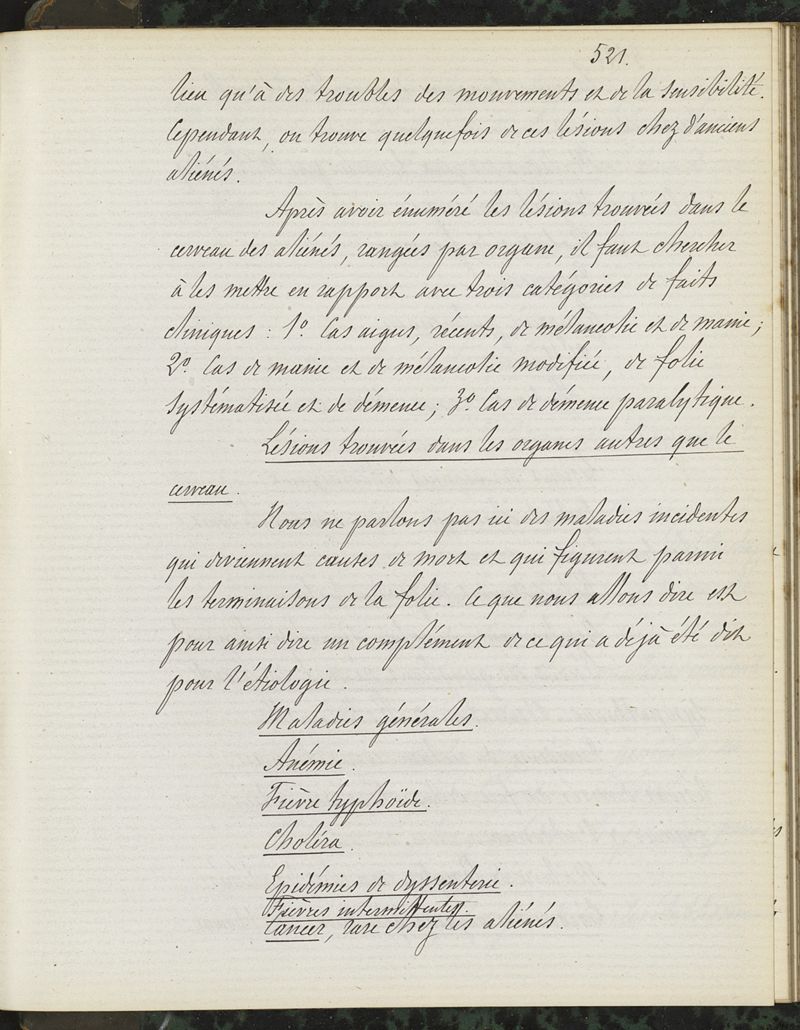 521.
lieu qu'à des troubles des mouvements et de la sensibilité.
Cependant, on trouve quelquefois de ces lésions chez d'anciens
aliénés.
Après avoir énuméré les lésions trouvées dans le
cerveau des aliénés, rangées par organe, il faut chercher
à les mettre en rapport avec trois catégories de faits
cliniques : 1º. Cas aigus, récents, de mélancolie et de manie ;
2º. Cas de manie et de mélancolie modifiée, de folie
systématisée et de démence ; 3º. Cas de démence paralytique.
Lésions trouvées dans les organes autres que le
cerveau.
Nous ne parlons pas ici des maladies incidentes
qui deviennent causes de mort et qui figurent parmi
les terminaisons de la folie. Ce que nous allons dire est
pour ainsi dire un complément de ce qui a déjà été dit
pour l'étiologie.
Maladies générales.
Anémie.
Fièvre typhoïde.
Choléra.
Epidémies de dyssenterie.
Fièvres intermittentes.
Cancer, rare chez les aliénés.